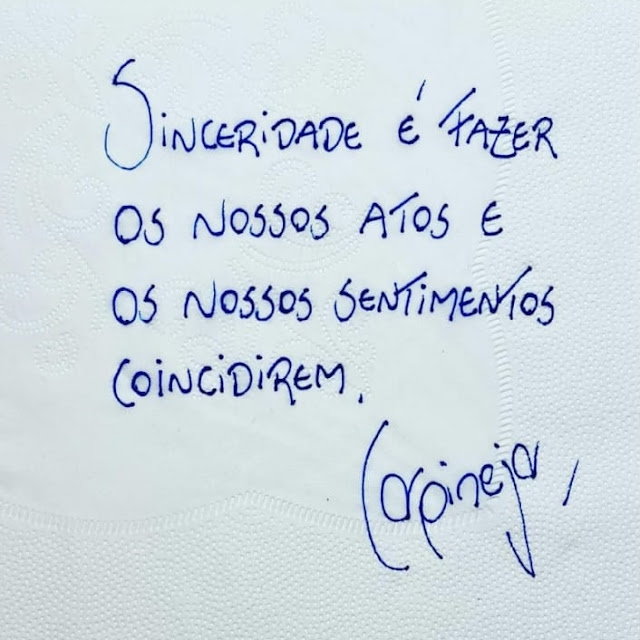 SINCERIDADE É FAZER
OS NOSSOS ATOS E
OS NOSSOS SENTIMENTOS
COINCIDIREM.
Carpinejar